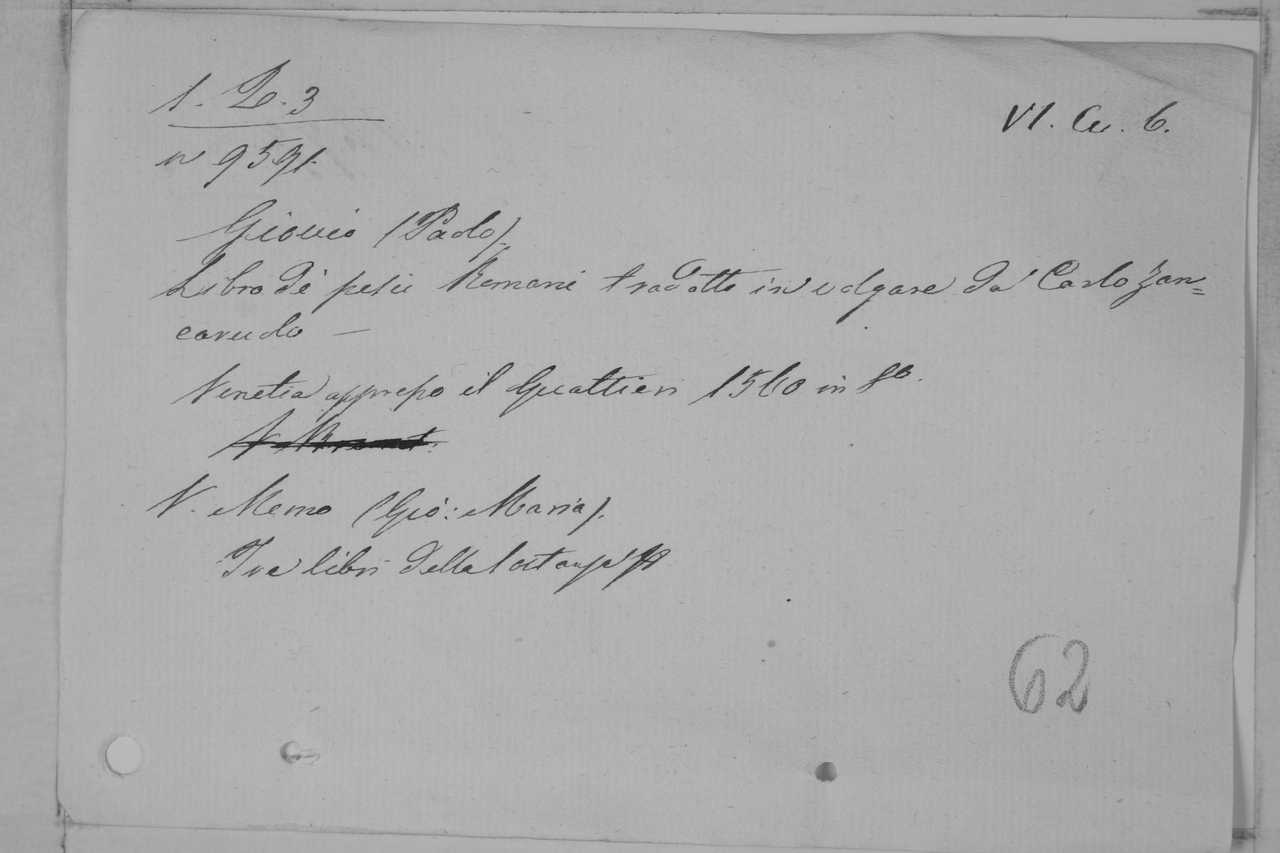 1. L. 3
VI. Cu. 6.
n 9591.
Giovio (Paolo).
Libro de' pesci Romani tradotto in volgare da Carlo Zan=
carudo —
Venetia appresso il Gualtieri 1560 in 8o.
V. Memo (Gio: Maria).
Tre libri della
62